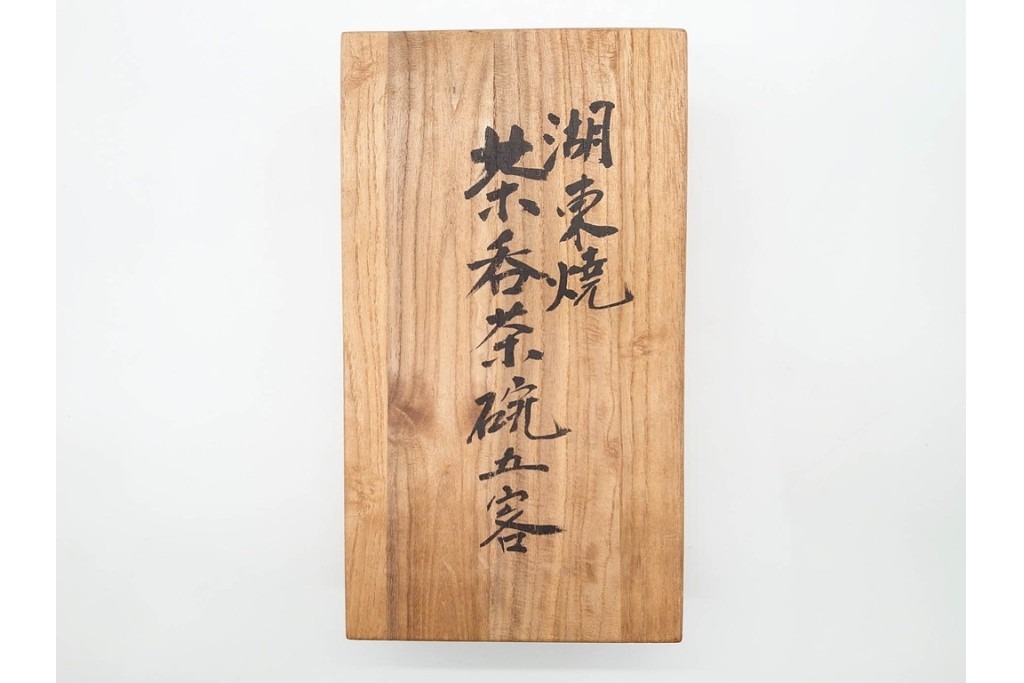 湖東焼
茶呑茶碗五客